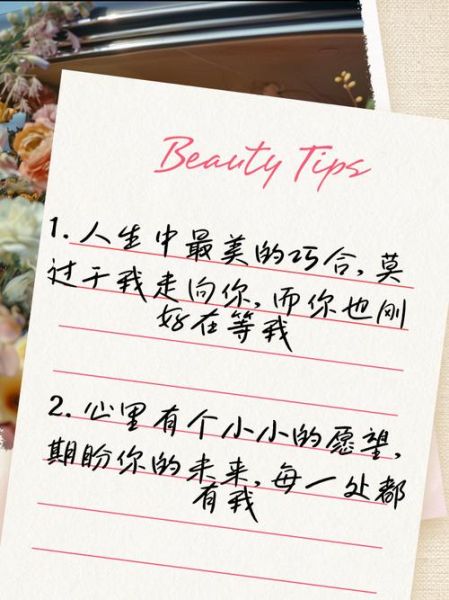 Beauty Tips
1. 人生中最美的巧合,莫
过于我走向你,而你也刚
好在等我
2. 心里有个小小的愿望,
期盼你的未来,每一处都
有我